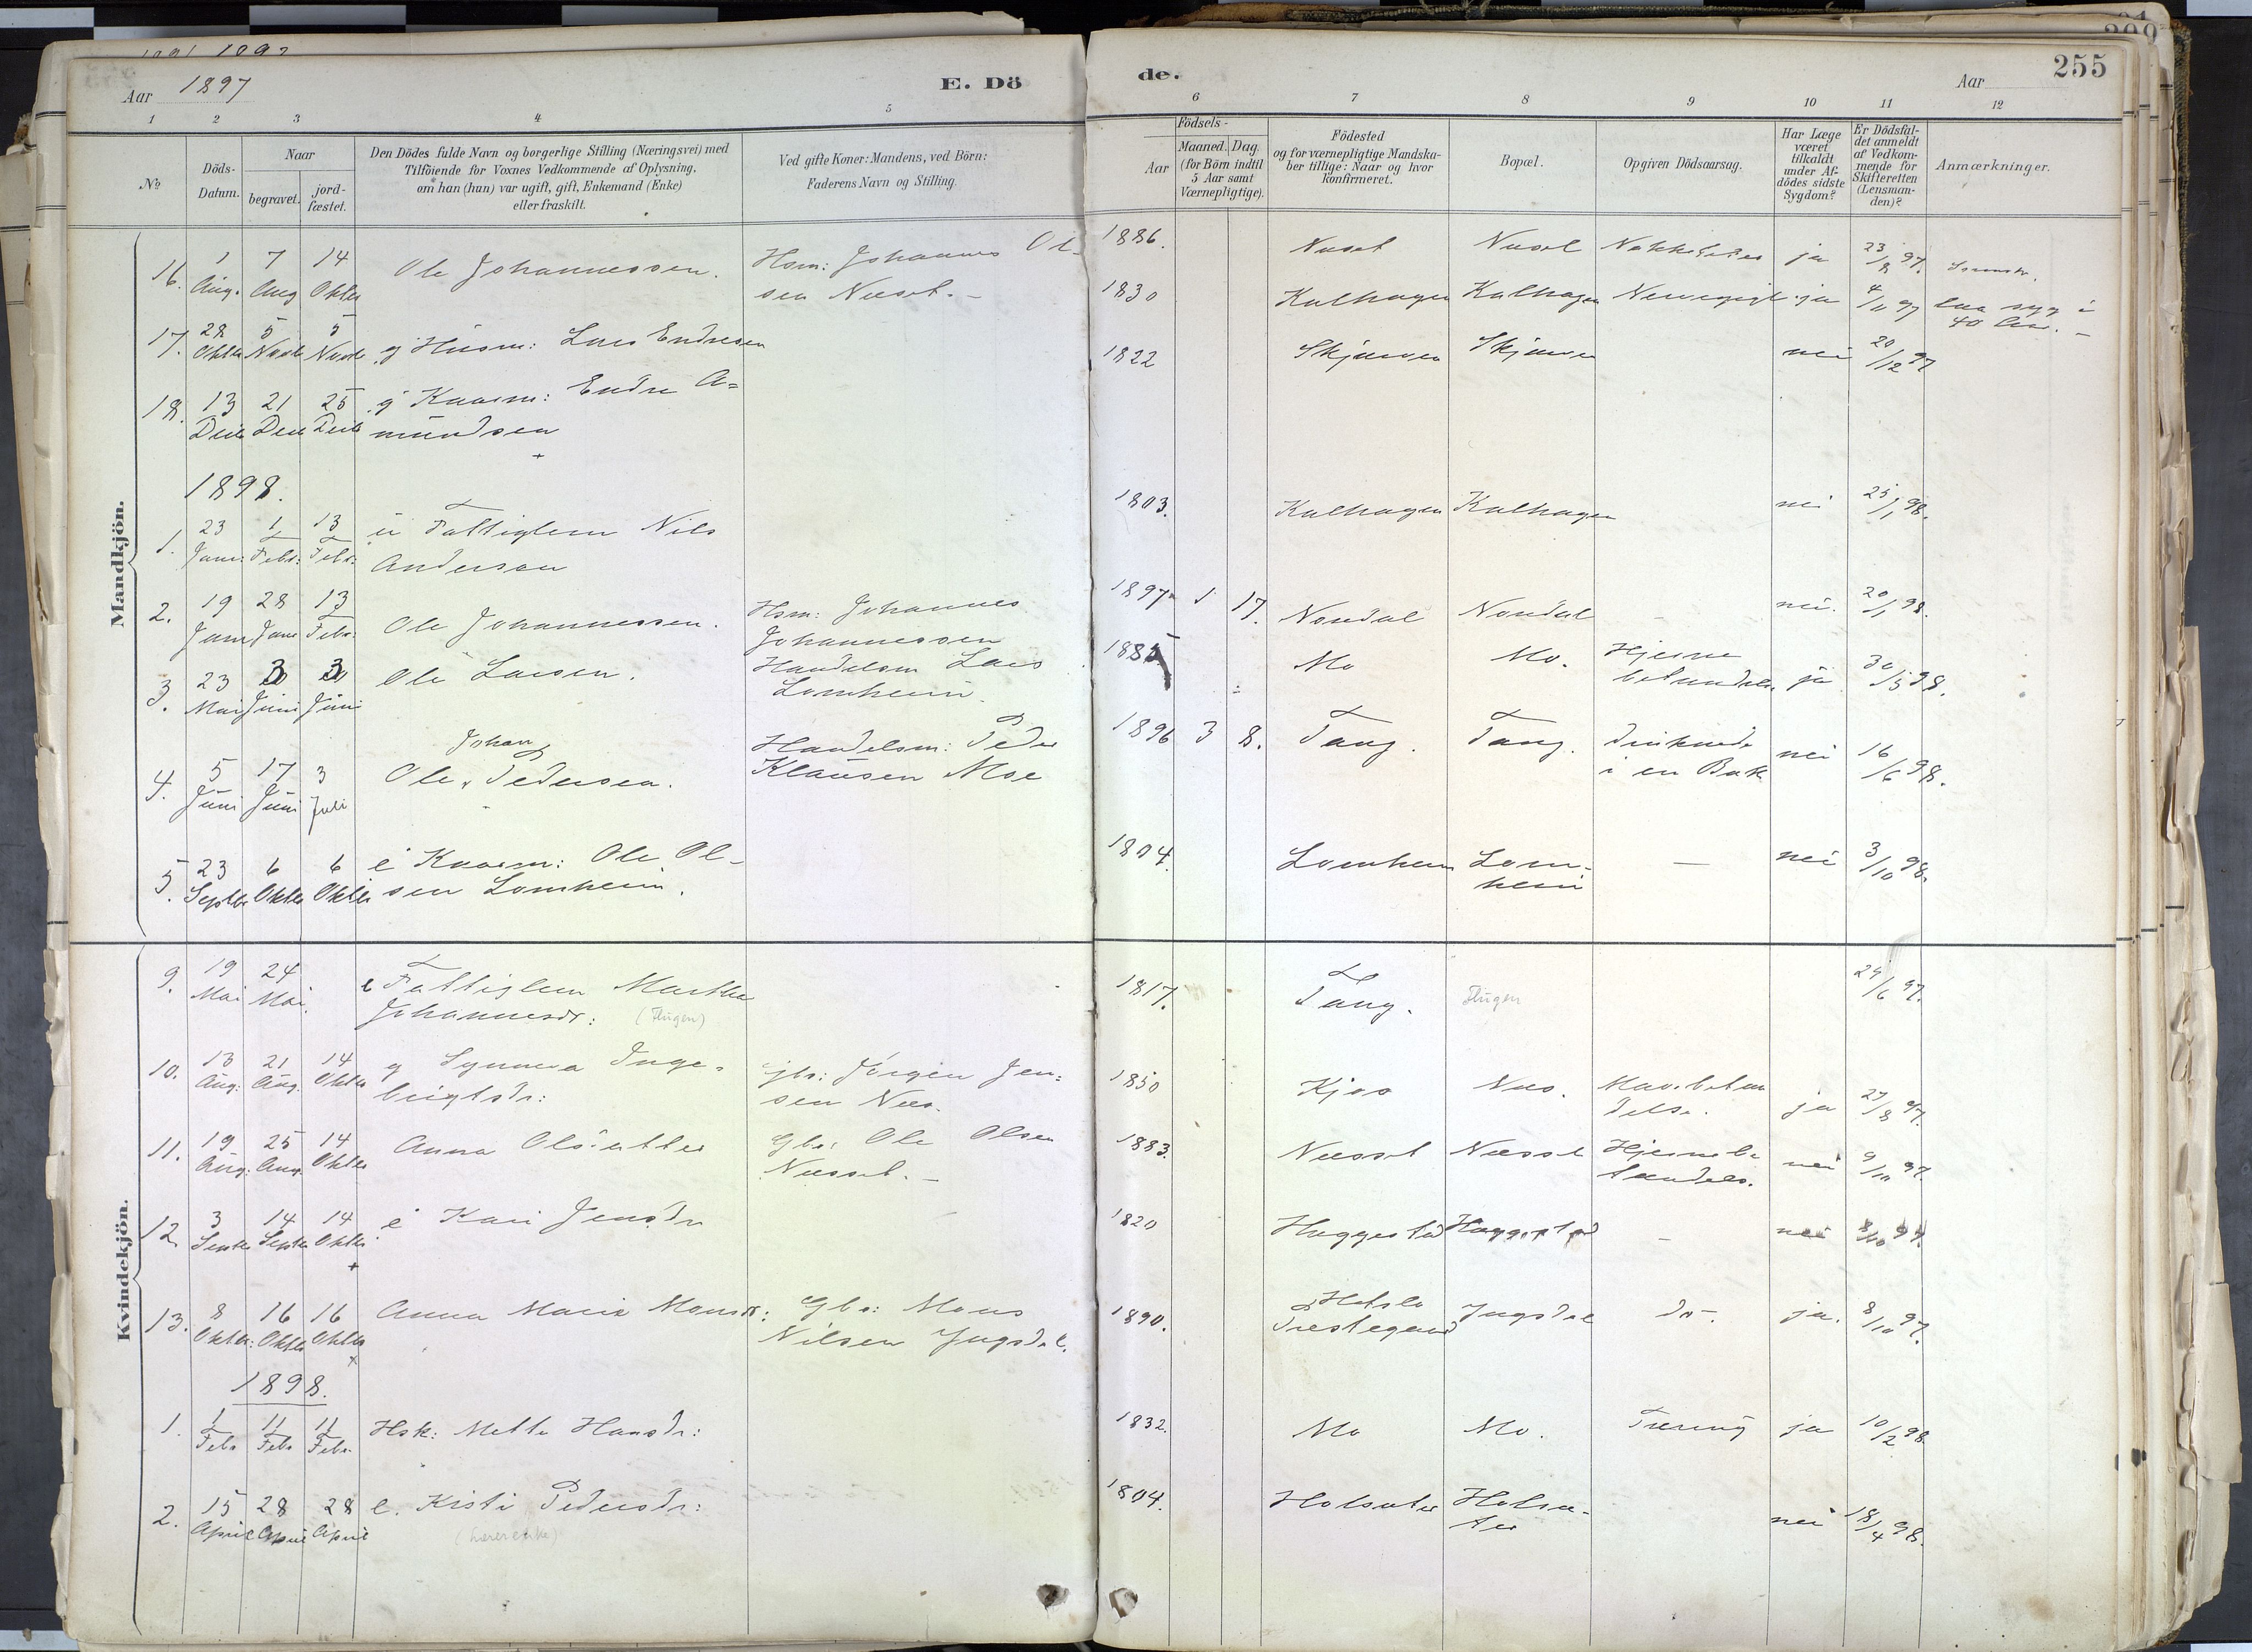 1891 1892
Aar 1897
E. Dö
de.
Aar
255
1 2 3 4 5 6 7 8 9 10 11 12
No
Döds-
Datum.
Naar
begravet.
jord-
fæstet.
Den Dödes fulde Navn og borgerlige Stilling (Næringsvei) med
Tilföiende for Voxnes Vedkommende af Oplysning,
om han (hun) var ugift, gift, Enkemand (Enke)
eller fraskilt.
Ved gifte Koner: Mandens, ved Börn:
Faderens Navn og Stilling.
Födsels-
Aar
Maaned. Dag.
(for Börn indtil
5 Aar samt
Værnepligtige).
Födested
og for værnepligtige Mandska-
ber tillige: Naar og hvor
konfirmeret.
Bopæl.
Opgiven Dödsaarsag.
Har Læge
været
tilkaldt
under Af-
dödes sidste
Sygdom?
Er Dödsfal-
det anmeldt
af Vedkom-
mende for
Skifteretten
(Lensman-
den)?
Anmærkninger.
Mandkjön.
16. 1 Aug. 7 Aug 14 Oktbr Ole Johannessen. Hsm: Johannes Ol-
sen Næset. 1886. Næset Næset ja 23/8 97.
17. 28 Oktbr 5 Novbr 5 Novbr g Husm: Lars Endresen 1830 Kalhagen Kalhagen ja 4/11 97 laa syg i
40 Aar.
18. 13 Decbr 21 Decbr 25 Decbr g Kaarm: Endre A=
mundsen 1822 Skjærsen Skjærsen nei 20/12 97
1898.
1. 23 Janr: 1 Febr: 13 Febr: u Fattiglem Nils
Anderson 1803. Kalhagen Kalhagen nei 25/1 98.
2. 19 Janr 28 Janr 13 Febr: Ole Johannessen. Hsm: Johannes
Johannessen 1897 1 17. Nondal Nondal nei. 20/1 98.
3. 23 Mai 3 Juni 3 Juni Ole Larsen. Handelsm Lars
Lomheim 1885 Mo Mo. Hjerne
betændelse ja 30/5 98.
4. 5 Juni 17 Juni 3 Juli Ole Johan Pedersen. Handelsm: Peder
Klausen Moe 1896 3 8. Tang. Tang. druknede
i en Bæk nei 16/6 98.
5. 23 Septbr 6 Oktbr 6 Oktbr e Kaarm: Ole Ol-
sen Lomheim. 1804. Lomheim Lom-
heim — nei 3/10 98.
Kvindekjön.
9. 19 Mai 24 Mai. e Fattiglem Martha
Johannesdr: (Flugen) 1817. Tang. Flugen 24/6 97.
10. 13 Aug: 21 Aug. 14 Oktbr g Synneva Inge-
brigtsdr: Gbr: Jörgen Jen=
sen Næs. 1850 Kjos Næs. Mavebetæn
delse. ja 27/8 97.
11. 19 Aug: 25 Aug. 14 Oktbr Anna Olsdatter Gbr: Ole Olsen
Næsset. 1883. Næsset Næsset Hjernebe
tændels. nei 9/10 97.
12. 3 Septbr 14 Septbr 14 Oktbr. e Kari Jensdr 1820 Haggestad Haggestad — nei 8/10 97.
13. 8 Oktbr: 16 Oktbr 16 Oktbr Anna Marie Monsdr: Gbr: Mons
Nilsen Yngsdal. 1890. Hafslo
Prestegaard Yngsdal do. ja. 8/10 97.
1898.
1. 1 Febr 11 Febr 11 Febr. Hsk: Mette Hansdr: 1832. Mo Mo. Tæring ja 10/2 98.
2. 15 April 28 April 28 April e. Kristi Pedersdr:
(Lærerenke) 1804. Holsæter Holsæ-
ter nei 18/4 98.